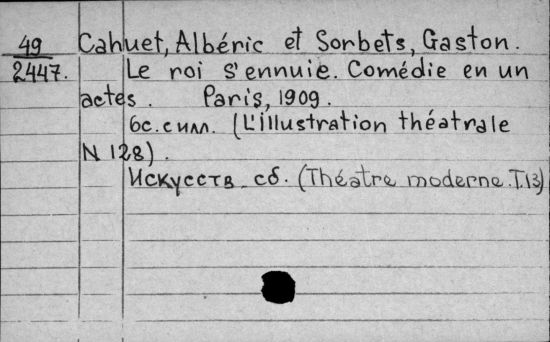 49 Cahuet, Albéric et Sorbets, Gaston.
2447. Le roi s'ennuie. Comédie en un
actes. Paris, 1909.
6с. с илл. (L'illustration théatrale
N 128).
Искусств. сб. (Théatre moderne. T.13)